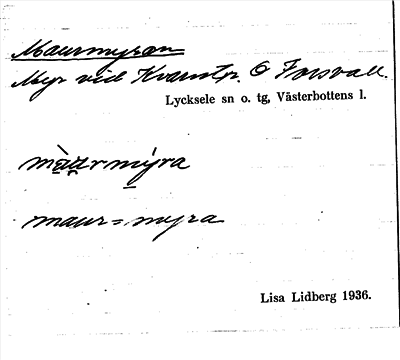 Maurmyran
Myr vid Kvarntp. O Forsvall.
Lycksele sn o. tg, Västerbottens l.
màu̯rmýra
maur = myra
Lisa Lidberg 1936.